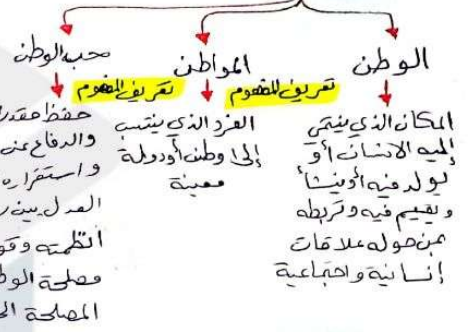 الوطن
تعريف المفهوم
المكان الذي ينتمي
إليه الانسان أو
يولد فيه أو ينشأ
ويقيم فيه وتربطه
بمن حوله علاقات
إنسانية واجتماعية
المواطن
تعريف المفهوم
الفرد الذي ينتسب
إلى وطن أو دولة
معينة
حب الوطن
حفظ
والدفاع عن
واستقراره
العدل بين
أنظمته
مصلحة الوط
المصلحة ال